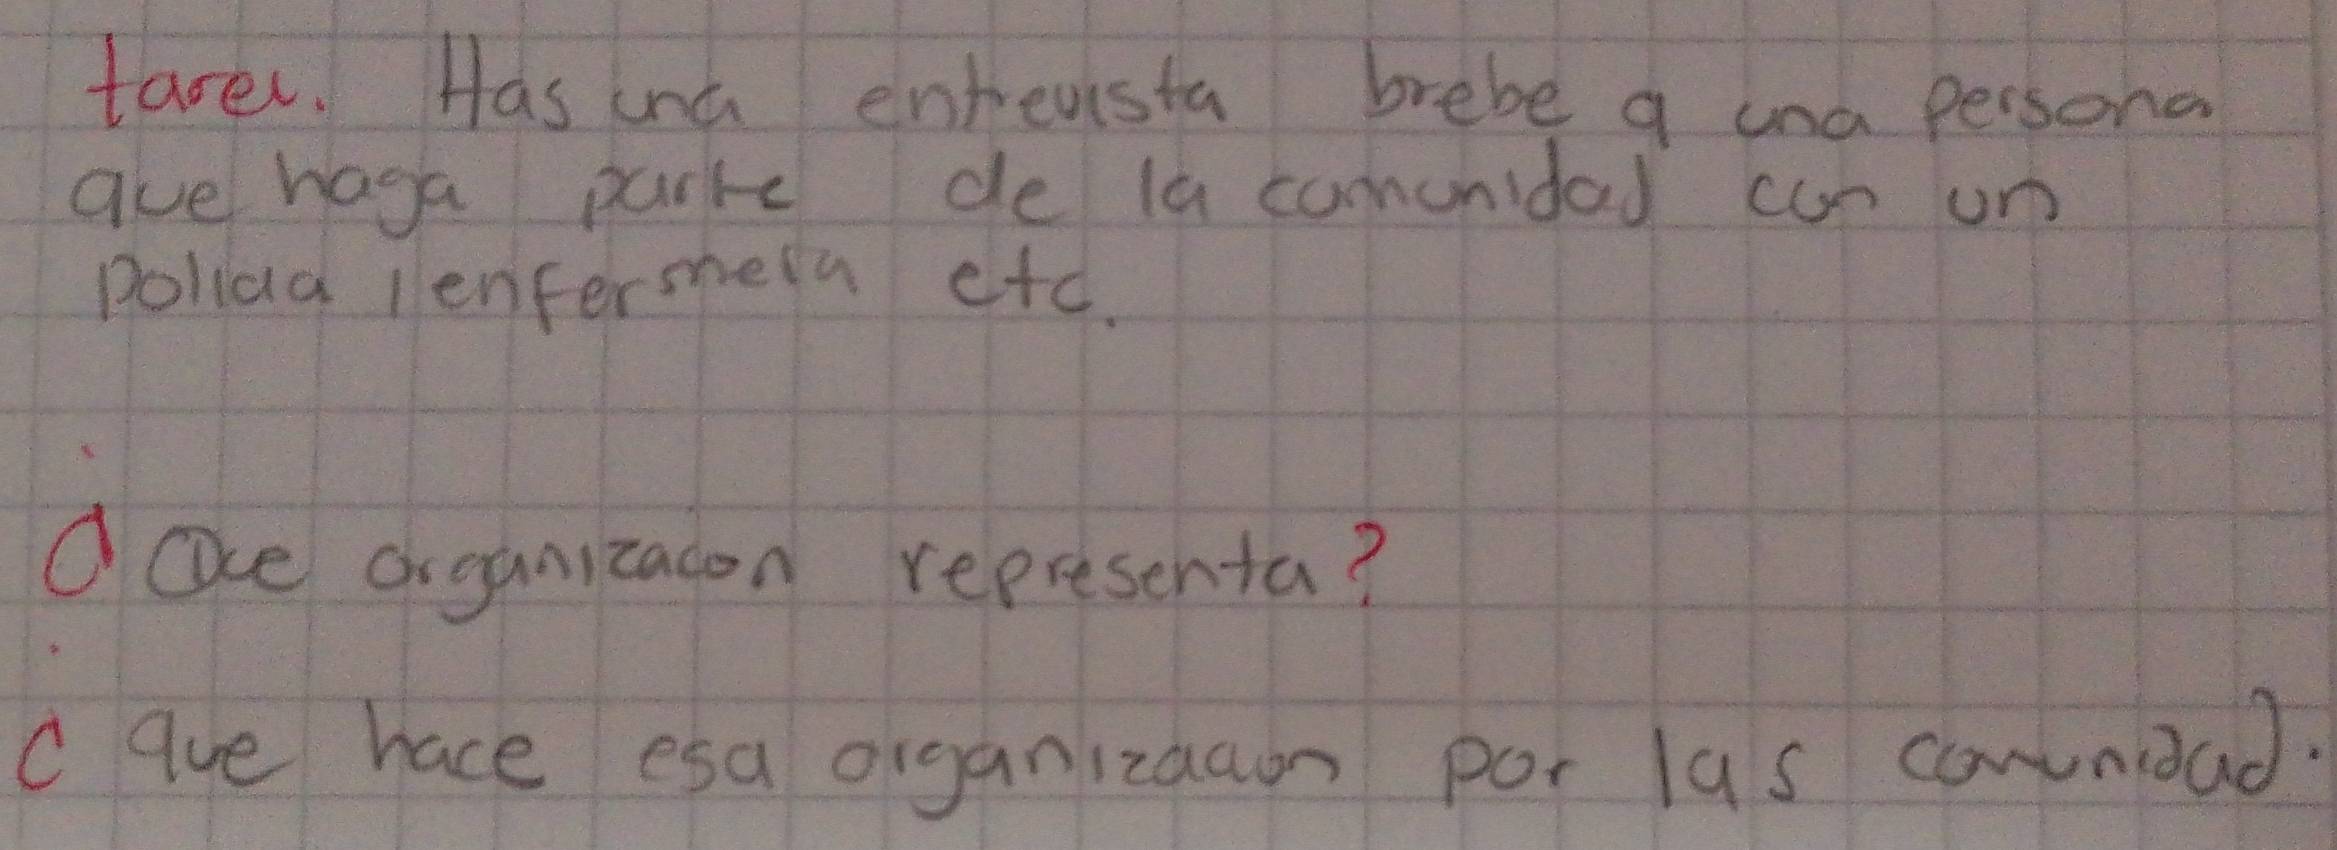 tarea. Has una entrevista brebe a una persona
que haga parte de la comunidad con un
policia, enfermera etc.
¿Que organizacon representa?
¿ que hace esa organizacion por las comunidad.